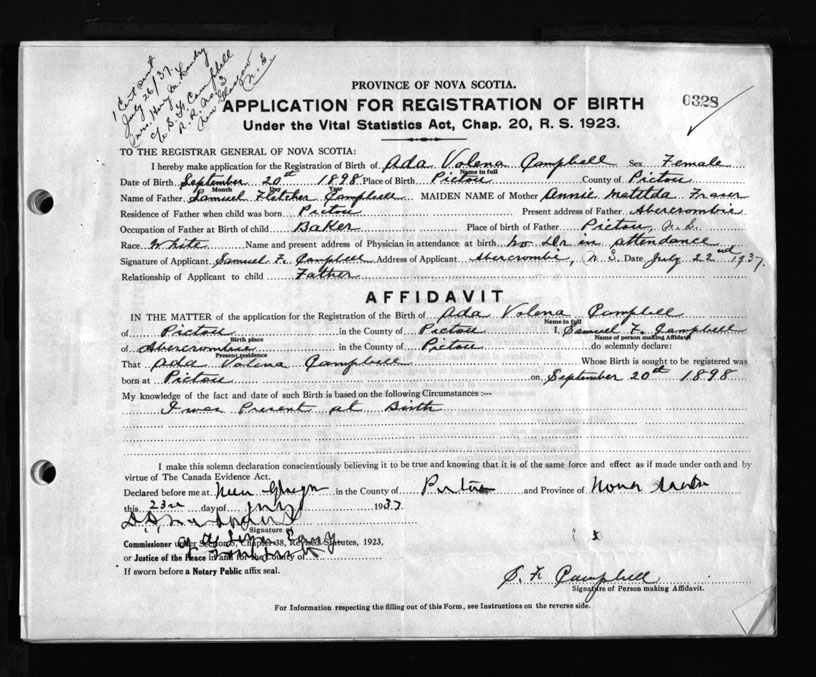 1 Cert sent
July 26/37.
Mrs. Harry M.
c/o S. F. Campbell
R. R. No. 3
New Glasgow
N. S.
PROVINCE OF NOVA SCOTIA.
0328
APPLICATION FOR REGISTRATION OF BIRTH
Under the Vital Statistics Act, Chap. 20, R. S. 1923.
TO THE REGISTRAR GENERAL OF NOVA SCOTIA:
I hereby make application for the Registration of Birth of Ada Volena Campbell Sex Female
Name in full
Date of Birth September 20th 1898 Place of Birth Pictou County of Pictou
Month Day Year
Name of Father Samuel Fletcher Campbell MAIDEN NAME of Mother Annie Matilda Fraser
Residence of Father when child was born Pictou Present address of Father Abercrombie
Occupation of Father at Birth of child Baker Place of birth of Father Pictou, N.S.
Race White Name and present address of Physician in attendance at birth No Dr in attendance
Signature of Applicant Samuel F. Campbell Address of Applicant Abercrombie, N S Date July 22nd 1937.
Relationship of Applicant to child Father
AFFIDAVIT
IN THE MATTER of the application for the Registration of the Birth of Ada Volena Campbell
Name in full
of Pictou in the County of Pictou I, Samuel F. Campbell
Birth place Name of person making Affidavit
of Abercrombie in the County of Pictou do solemnly declare:
Present residence
That Ada Volena Campbell Whose Birth is sought to be registered was
born at Pictou on September 20th 1898
My knowledge of the fact and date of such Birth is based on the following Circumstances :—
I was Present at Birth
I make this solemn declaration conscientiously believing it to be true and knowing that it is of the same force and effect as if made under oath and by
virtue of The Canada Evidence Act.
Declared before me at New Glasgow in the County of Pictou and Province of Nova Scotia
this 23rd day of July 1937
Signature
Commissioner under Section 6, Chapter 38, Revised Statutes, 1923,
or Justice of the Peace in and for the County of
If sworn before a Notary Public affix seal.
S. F. Campbell
Signature of Person making Affidavit.
For Information respecting the filling out of this Form, see Instructions on the reverse side.